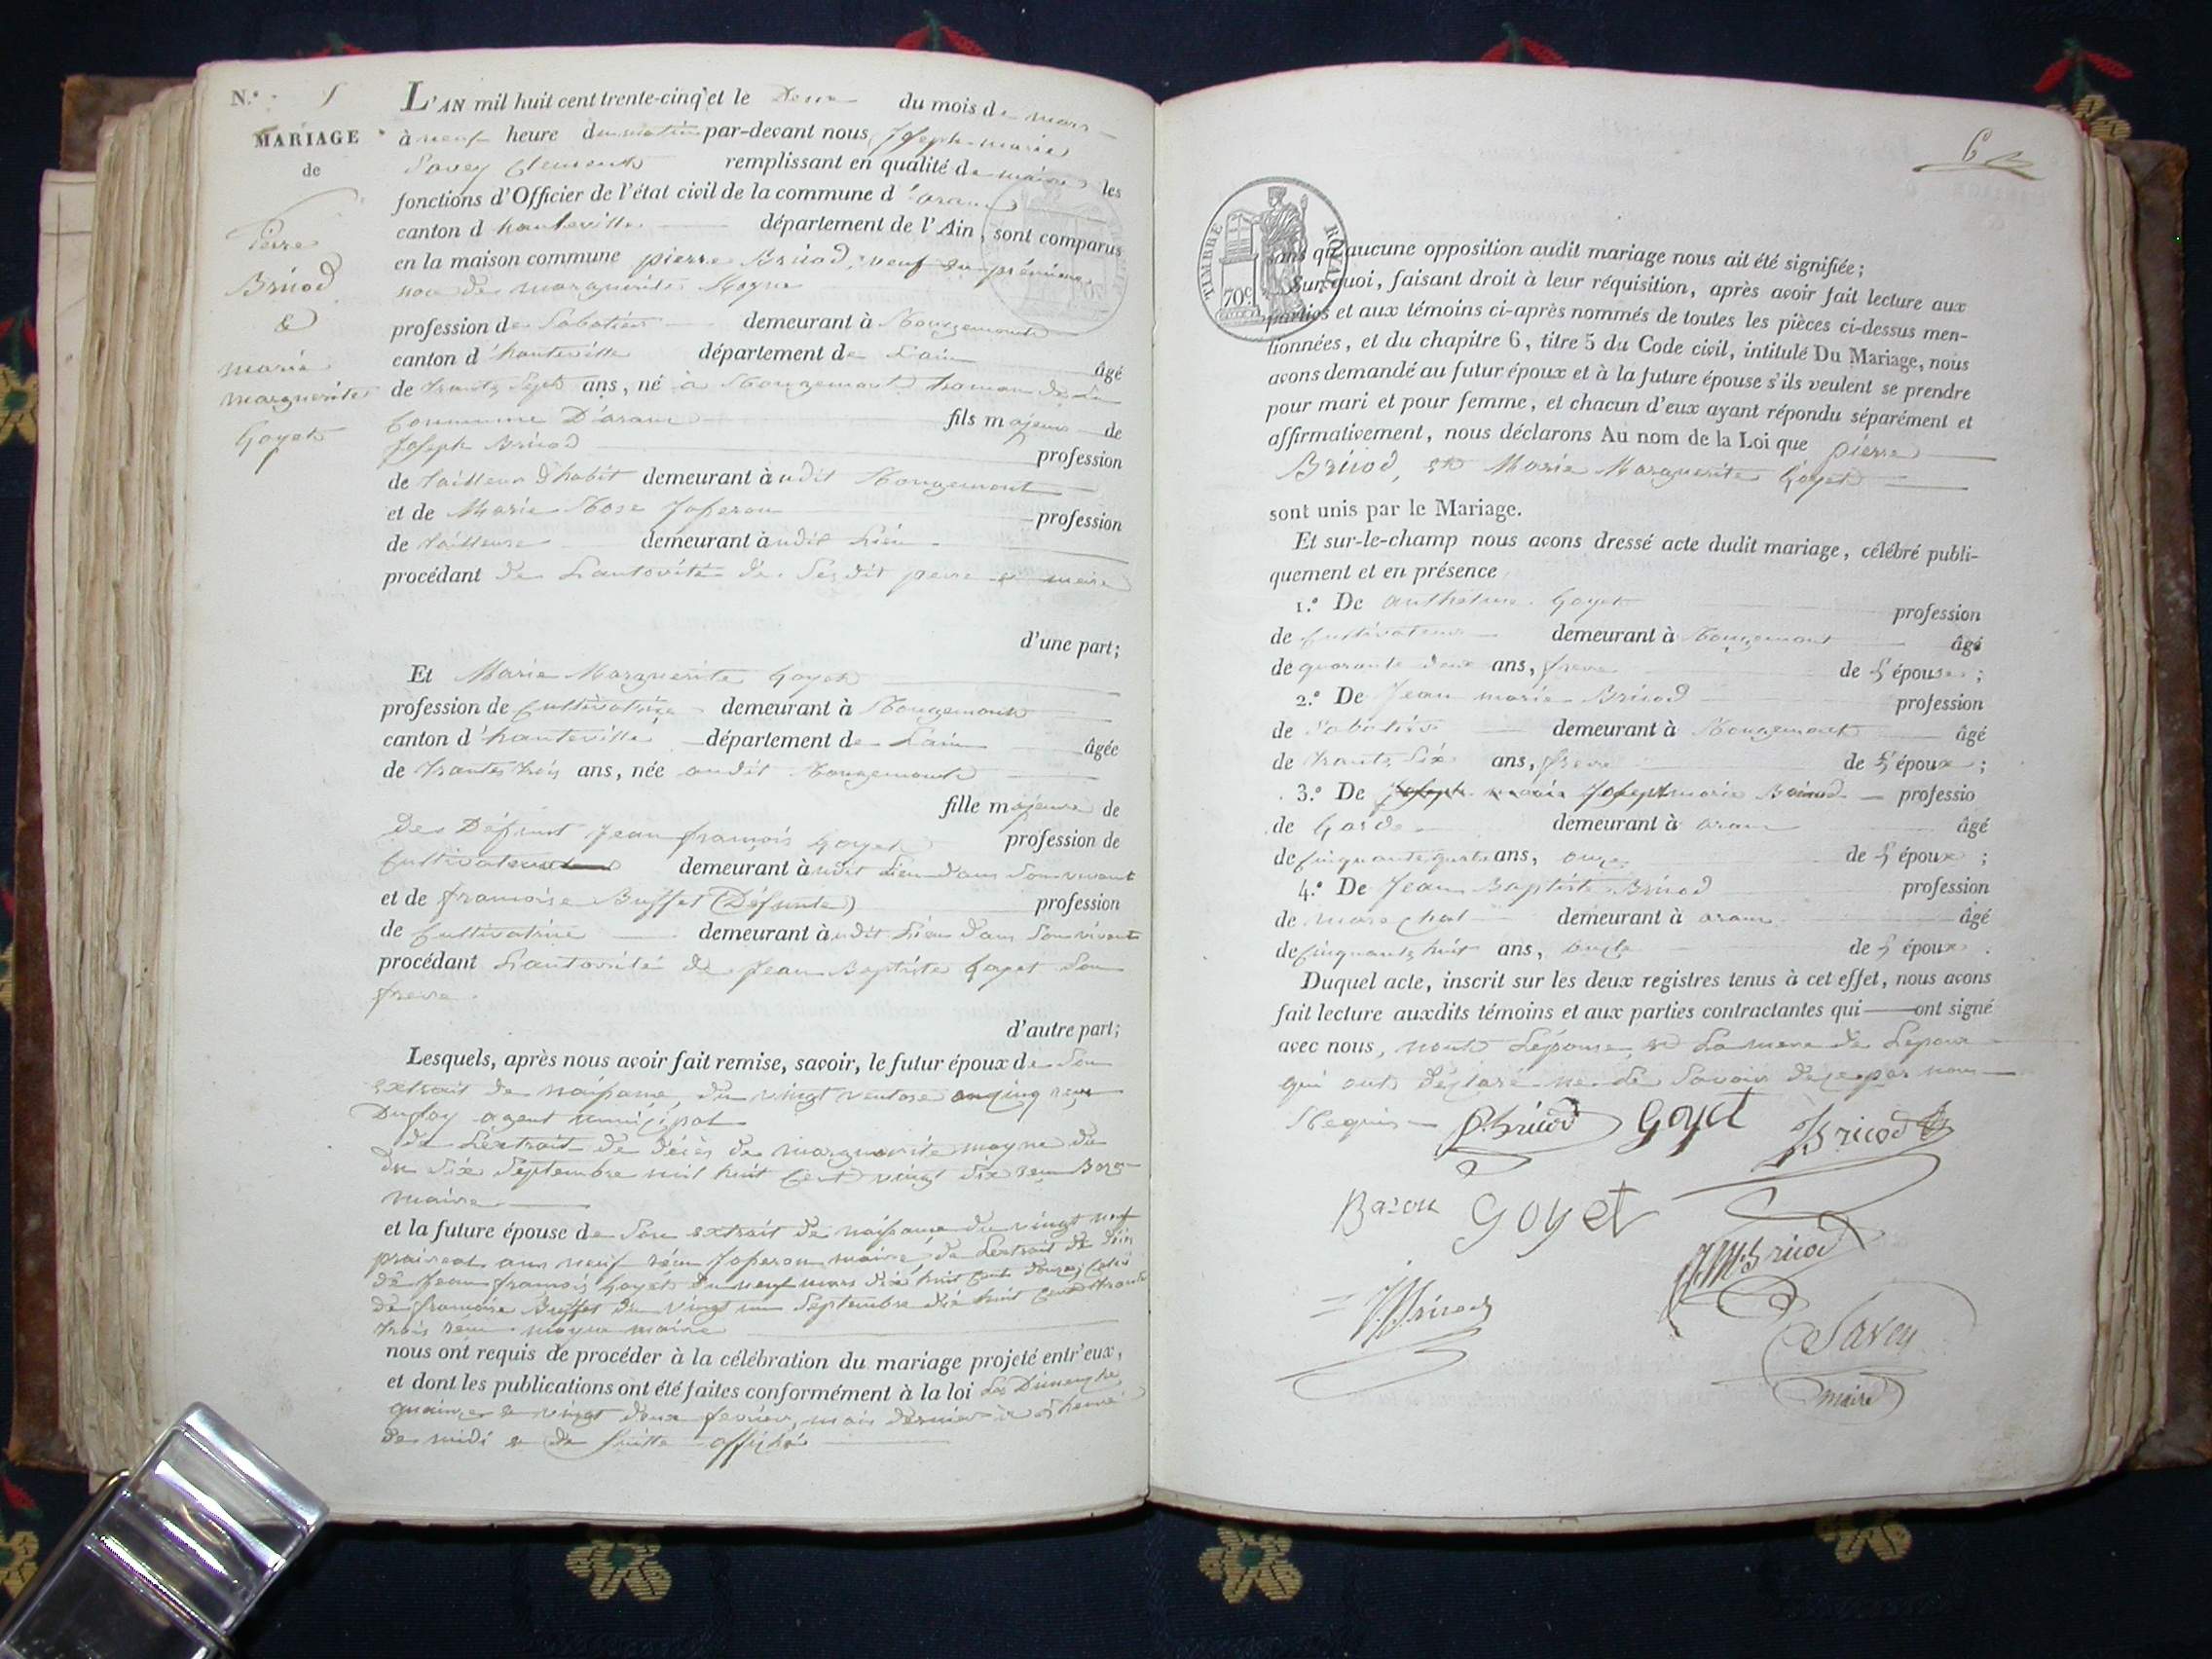 N.º 5
MARIAGE
de
Pierre
Bricod
&
marie
marguerite
Goyet
L'AN mil huit cent trente-cinq et le Deux du mois de mars
à neuf heure du matin par-devant nous Joseph marie
Savey Clement remplissant en qualité de maire les
fonctions d'Officier de l'état civil de la commune d'aranc
canton d hauteville département de l'Ain, sont comparus
en la maison commune pierre Bricod, veuf en première
noce de marguerite Moyne
profession de Sabotier demeurant à Rougemont
canton d'hauteville département de L'ain âgé
de trante Sept ans, né à Rougemont hameau de La
Commune D'aranc fils majeur de
Joseph Bricod profession
de tailleur d'habit demeurant à udit Rougemont
et de Marie Rose Joperon profession
de tailleuse demeurant à udit Lieu
procédant de L'autorité de Sesdit pere et meire
d'une part;
Et Marie Marguerite Goyet
profession de Cultivatrice demeurant à Rougemont
canton d'hauteville département de L'ain âgée
de trante trois ans, née audit Rougemont
fille majeure de
De Défunt Jean françois Goyet profession de
Cultivateur demeurant à udit Lieu dans Son vivant
et de françoise Buffet (Défunte) profession
de Cultivatrice demeurant à udit Lieu dans Son vivant
procédant L'autorité de Jean Baptiste Goyet Son
frere.
d'autre part;
Lesquels, après nous avoir fait remise, savoir, le futur époux de Son
extrait de naissance, du vingt ventose an cinq reçu
Duflay agent municipal
de L'extrait de décès de marguerite moyne du
du Six Septembre mil huit Cent vingt Six reçu
maire
et la future épouse de Son extrait de naissance du vingt neuf
prairial an neuf récu Joperon maire, de L'extrait de décès
de Jean françois Goyet du neuf mars dix huit Cent douze, Celui
de françoise Buffet du vingt un Septembre dix huit Cent trante
trois récu moyne maire
nous ont requis de procéder à la célébration du mariage projeté entr'eux,
et dont les publications ont été faites conformément à la loi Les Dimenche
quainze & vingt deux fevrier, mois dernier à heure
de midi & de Suitte affiché
6
TIMBRE ROYAL
70c
sans qu'aucune opposition audit mariage nous ait été signifiée;
Sur quoi, faisant droit à leur réquisition, après avoir fait lecture aux
parties et aux témoins ci-après nommés de toutes les pièces ci-dessus men-
tionnées, et du chapitre 6, titre 5 du Code civil, intitulé Du Mariage, nous
avons demandé au futur époux et à la future épouse s'ils veulent se prendre
pour mari et pour femme, et chacun d'eux ayant répondu séparément et
affirmativement, nous déclarons Au nom de la Loi que pierre
Bricod, et Marie Marguerite Goyet
sont unis par le Mariage.
Et sur-le-champ nous avons dressé acte dudit mariage, célébré publi-
quement et en présence
1.º De anthelme Goyet profession
de Cultivateur demeurant à Rougemont âgé
de quarante deux ans, frere de L'épouse;
2.º De Jean marie Bricod profession
de Sabotier demeurant à Rougemont âgé
de trante Six ans, frere de L'époux;
3.º De Joseph marie Joseph marie profession
de Garde demeurant à aranc âgé
de Cinquante quatre ans, de L'époux;
4.º De Jean Baptiste Bricod profession
de marechal demeurant à aranc âgé
de Cinquante huit ans, oncle de L'époux.
Duquel acte, inscrit sur les deux registres tenus à cet effet, nous avons
fait lecture auxdits témoins et aux parties contractantes qui ont signé
avec nous, nont L'épouse, et La mere de L'epoux
qui ont déclaré ne Le Savoir de ce par nous
Requis P. bricod Goyet Bricod
Bazou Goyet
JM Bricod
J Bricod
Savey
maire